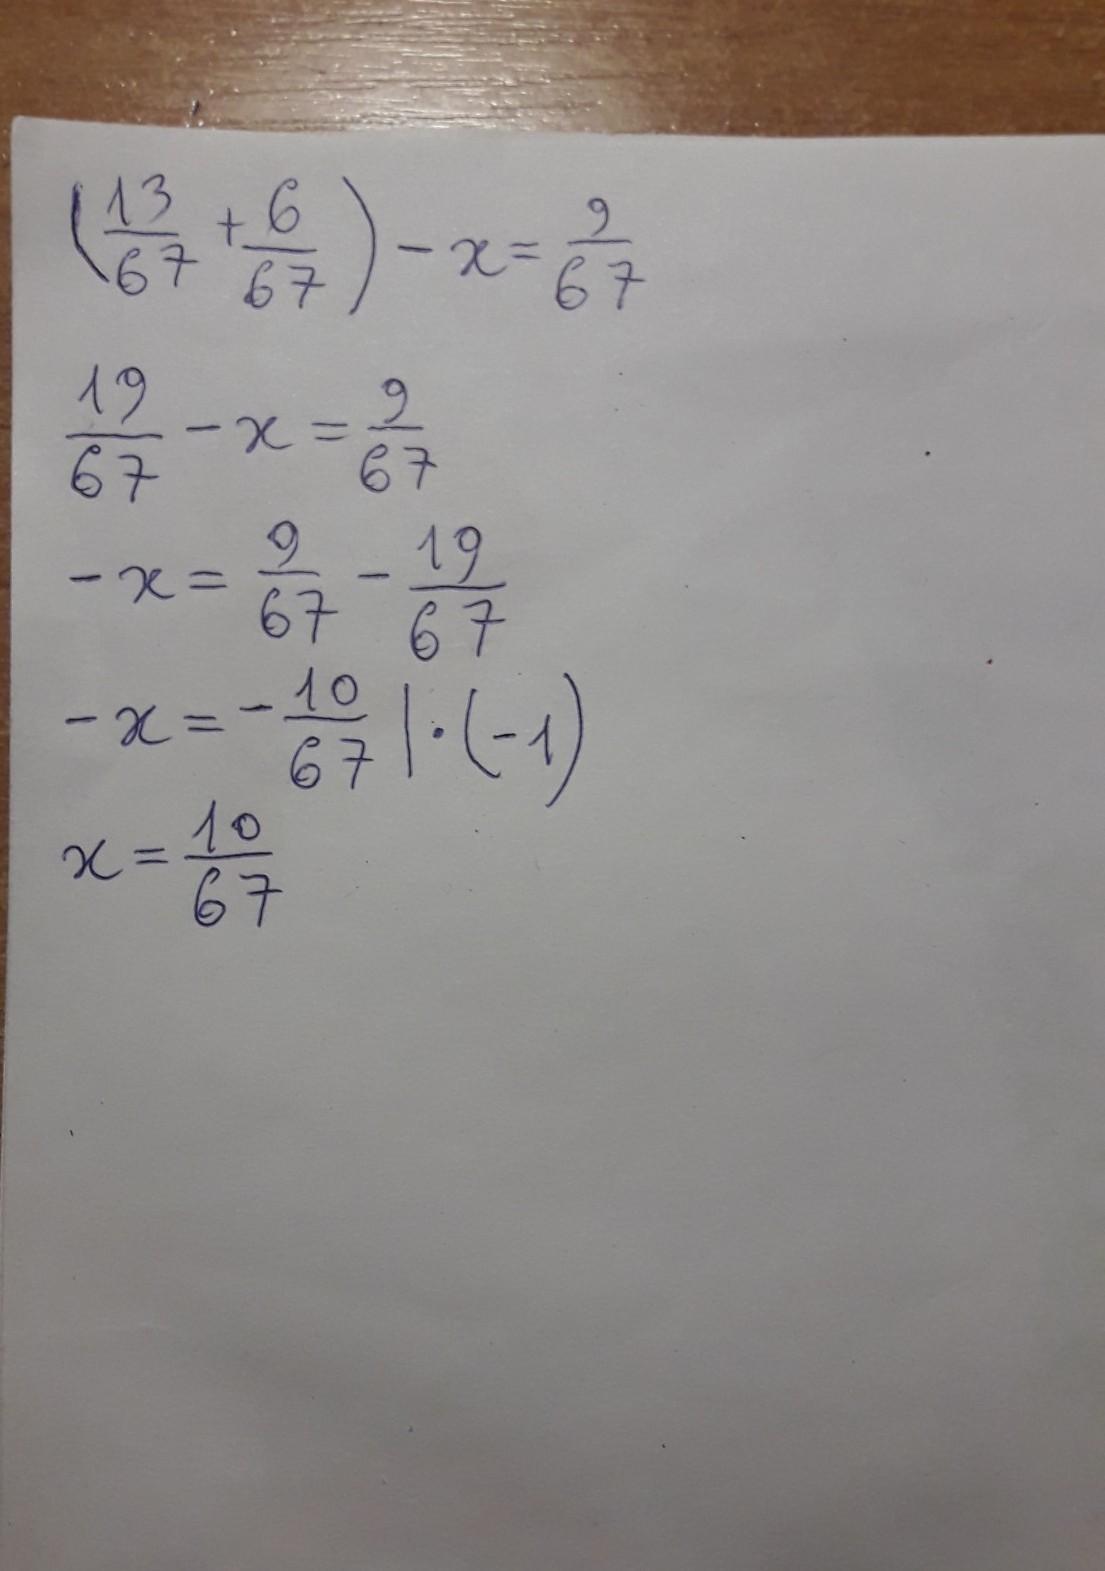 (13/67 + 6/67) - x = 9/67
19/67 - x = 9/67
- x = 9/67 - 19/67
- x = - 10/67 | · (-1)
x = 10/67